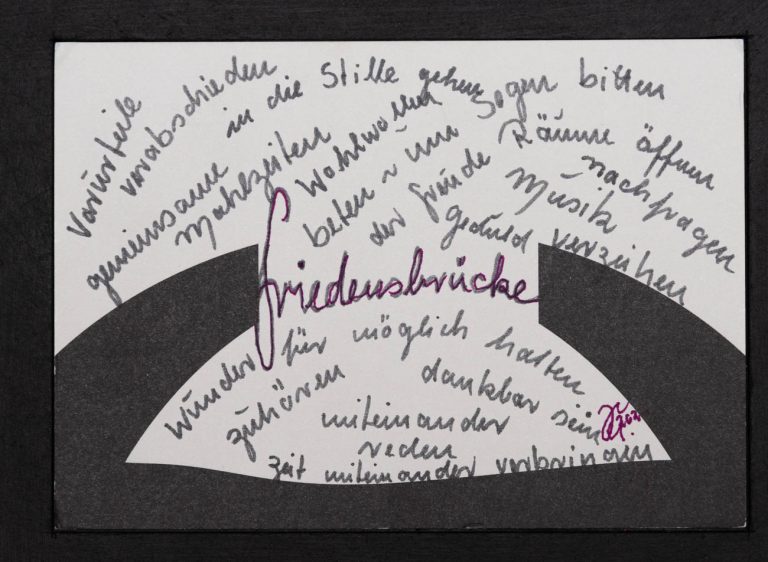 Vorurteile
verabschieden
in die Stille gehen
Segen bitten
gemeinsame
Mahlzeiten
Wohlwollen
beten ~ um
der freude
Räume öffnen
nachfragen
Musik
geduld
verzeihen
friedensbrücke
Wunder für möglich halten
zuhören
dankbar sein
miteinander
reden
Zeit miteinander verbringen